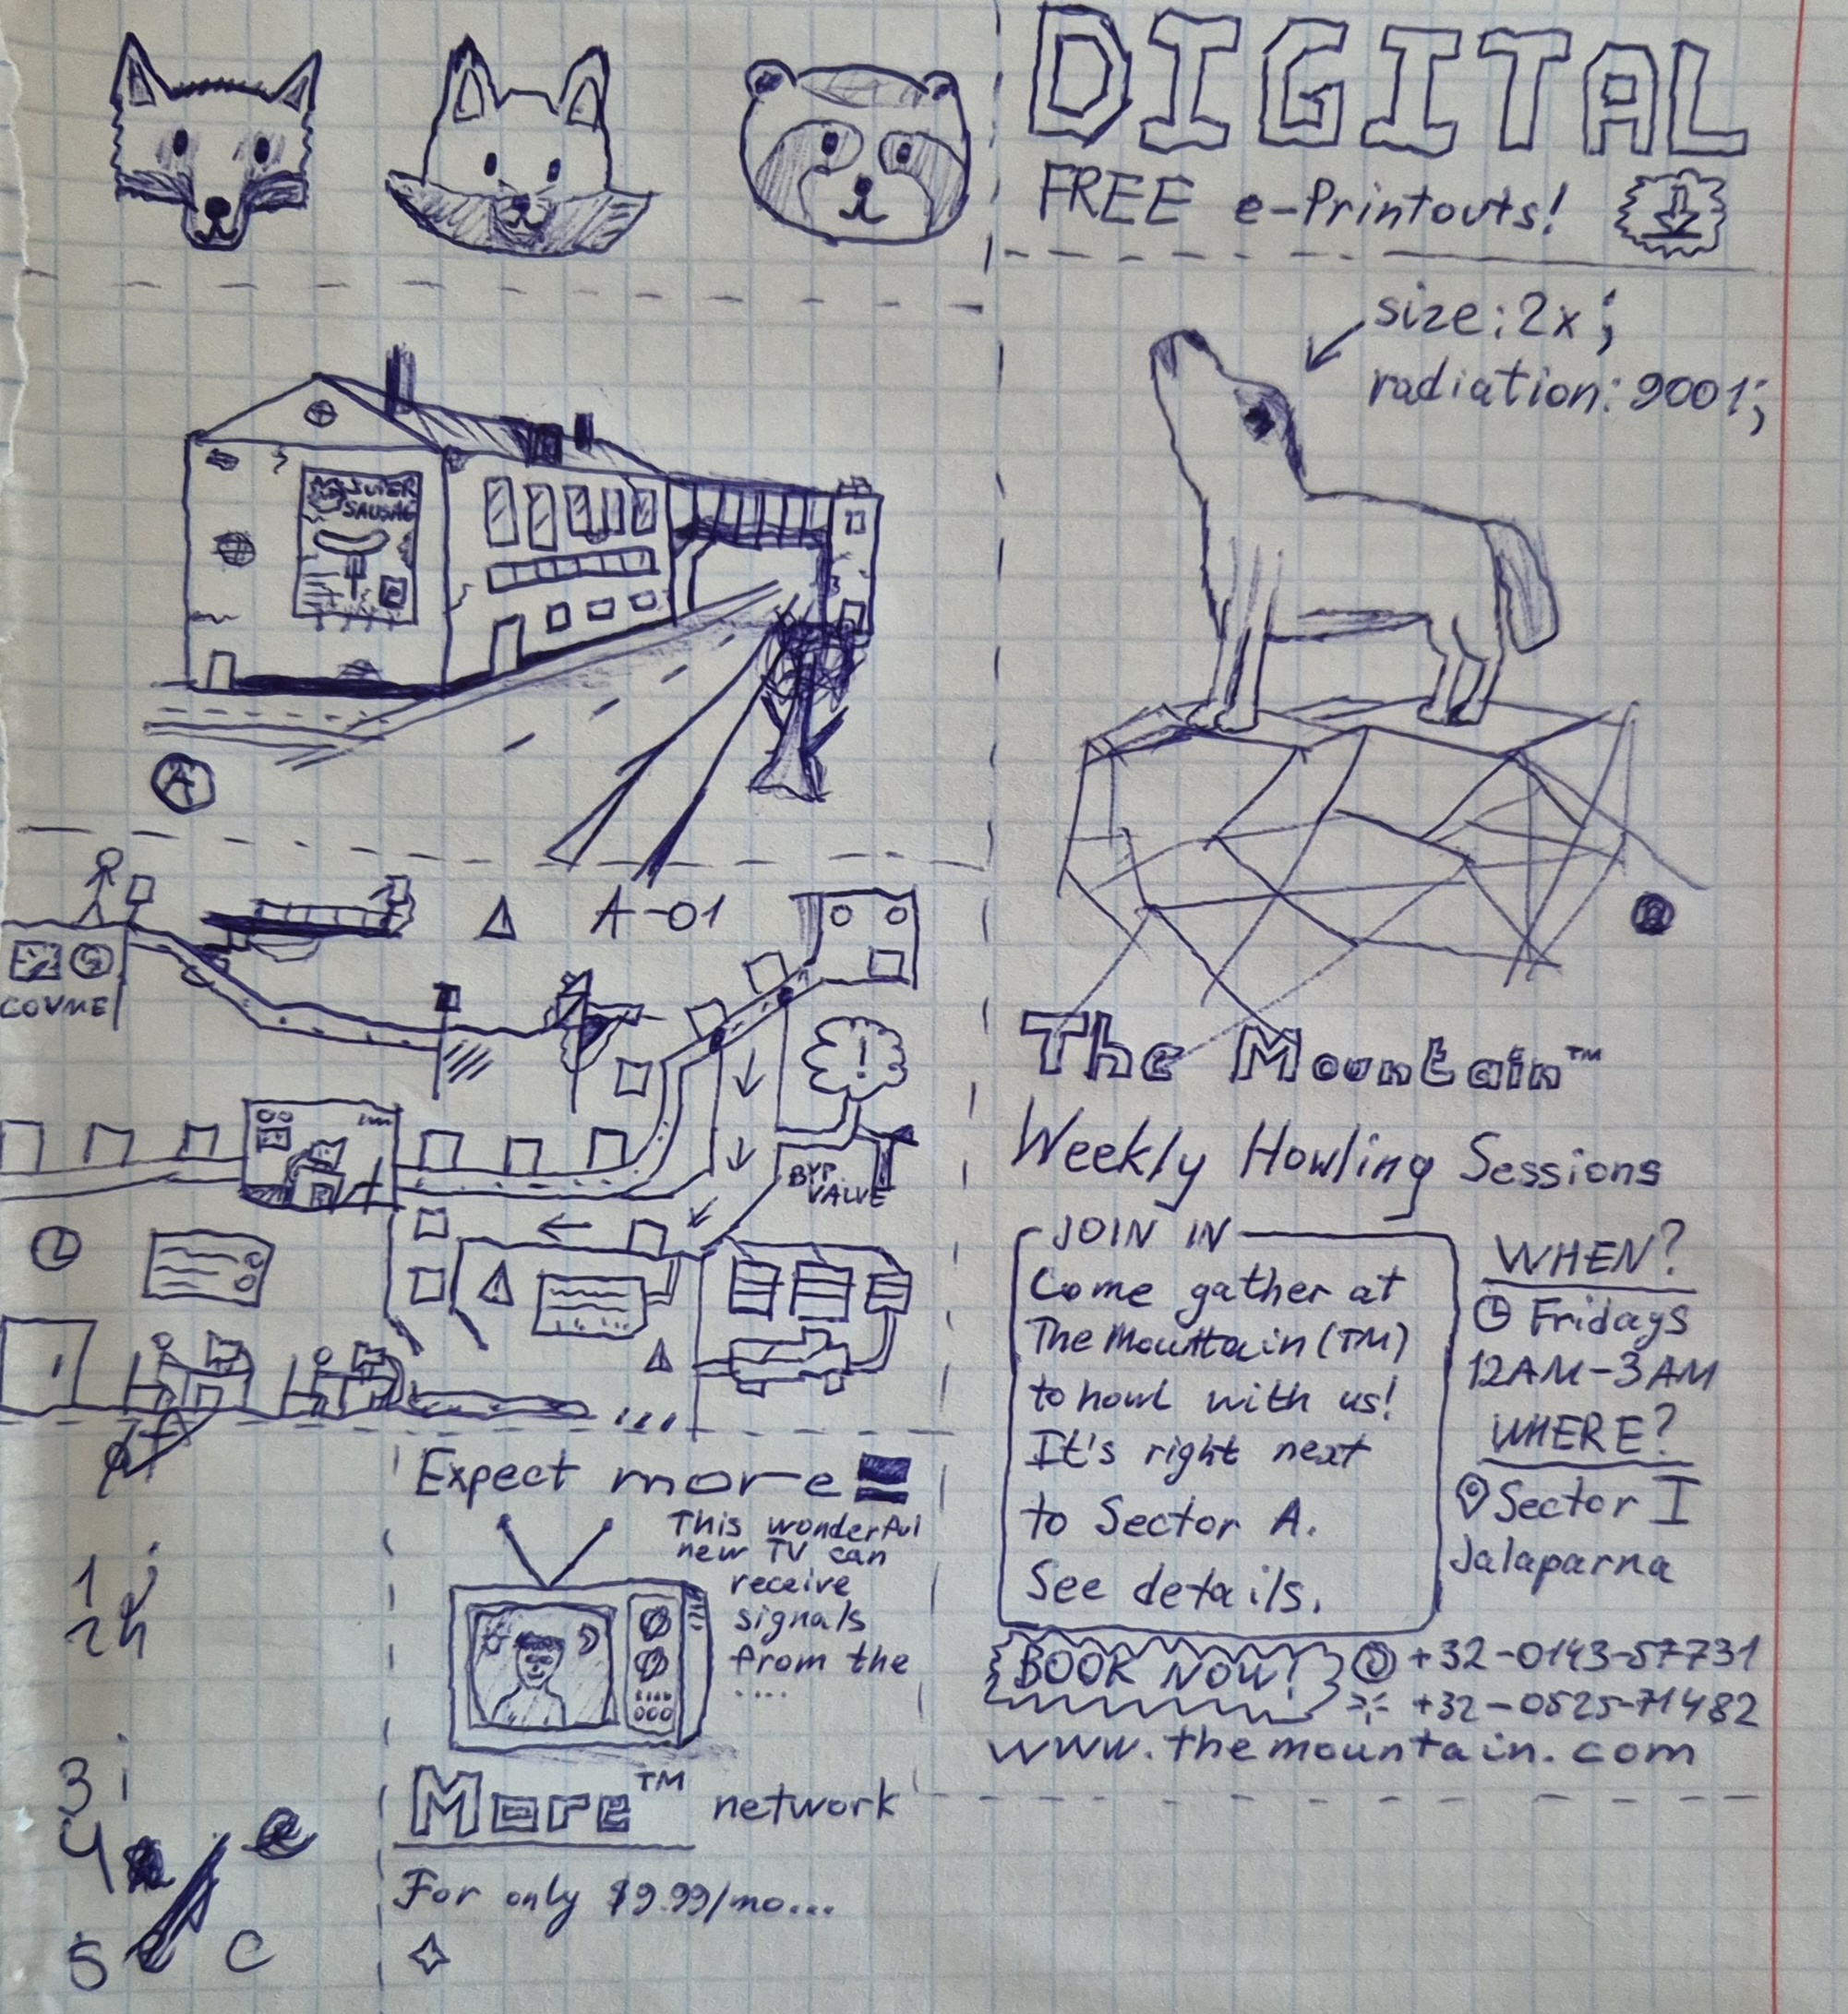 DIGITAL
FREE e-Printouts!
size: 2x;
radiation: 9001;
SAUSAG
A
A-01
!
BYP.
VALVE
The Mountain™
Weekly Howling Sessions
JOIN IN
Come gather at
The Mountain (TM)
to howl with us!
It's right next
to Sector A.
See details.
WHEN?
Fridays
12AM-3AM
WHERE?
Sector I
Jalaparna
BOOK NOW!
+32-0143-57731
+32-0525-71482
www.themountain.com
Expect more
This wonderful
new TV can
receive
signals
from the
....
More™ network
For only $9.99/mo...
1
2 h
3 i
4
5 c